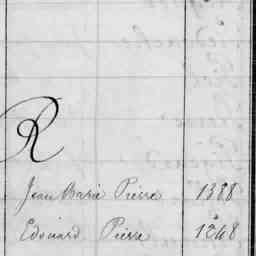 R
Jean Marie Pierre 1388
Edouard Pierre 1248